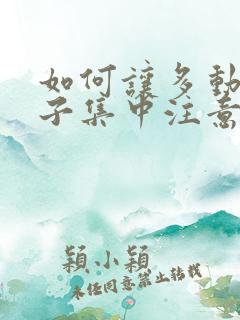 如何讓多動
子集中注意
穎小穎
未经同意禁止转载